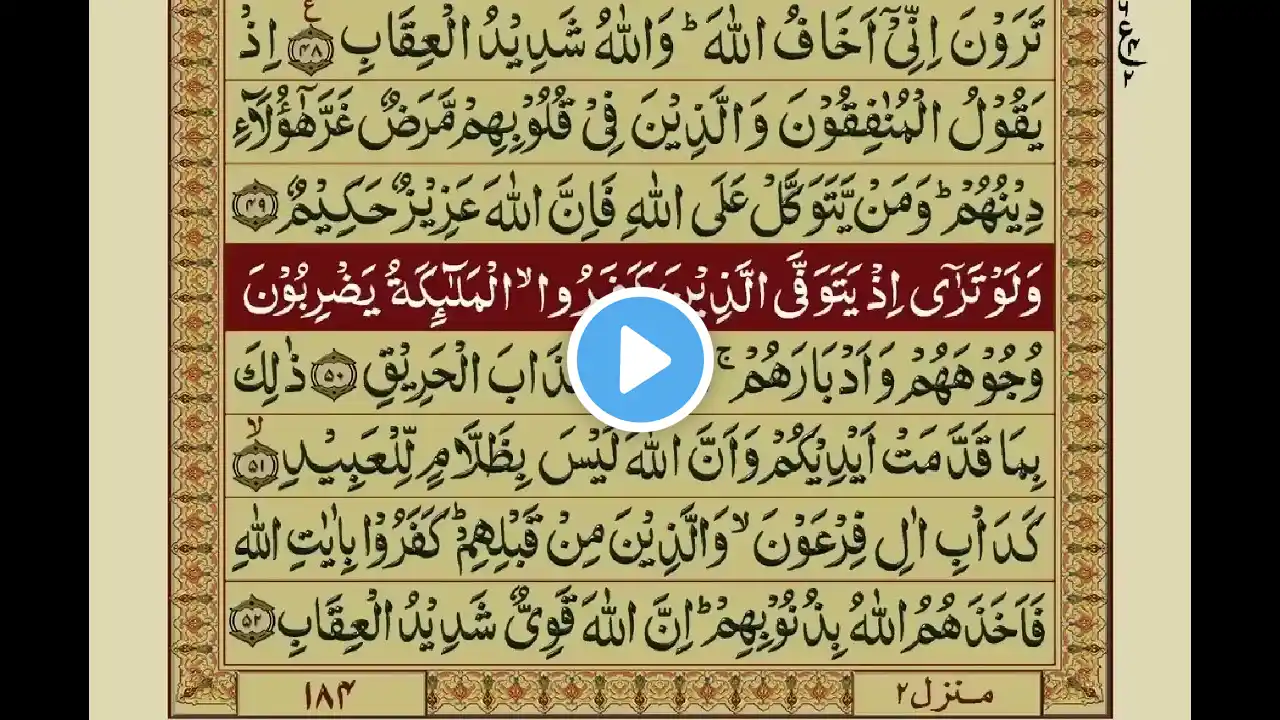 تَرَوْنَ اِنِّىْۤ اَخَافُ اللّٰهَ ؕ وَاللّٰهُ شَدِيْدُ الْعِقَابِ ﴿۴۸﴾ اِذْ
يَقُوْلُ الْمُنٰفِقُوْنَ وَالَّذِيْنَ فِىْ قُلُوْبِهِمْ مَّرَضٌ غَرَّ هٰۤؤُلَآءِ
دِيْنُهُمْ ؕ وَمَنْ يَّتَوَكَّلْ عَلَى اللّٰهِ فَاِنَّ اللّٰهَ عَزِيْزٌ حَكِيْمٌ ﴿۴۹﴾
وَلَوْ تَرٰٓى اِذْ يَتَوَفَّى الَّذِيْنَ كَفَرُوا ۙ الْمَلٰٓئِكَةُ يَضْرِبُوْنَ
وُجُوْهَهُمْ وَاَدْبَارَهُمْ ۚ عَذَابَ الْحَرِيْقِ ﴿۵۰﴾ ذٰلِكَ
بِمَا قَدَّمَتْ اَيْدِيْكُمْ وَاَنَّ اللّٰهَ لَيْسَ بِظَلَّامٍ لِّلْعَبِيْدِ ۙ ﴿۵۱﴾
كَدَاْبِ اٰلِ فِرْعَوْنَ ۙ وَالَّذِيْنَ مِنْ قَبْلِهِمْ ؕ كَفَرُوْا بِاٰيٰتِ اللّٰهِ
فَاَخَذَهُمُ اللّٰهُ بِذُنُوْبِهِمْ ؕ اِنَّ اللّٰهَ قَوِىٌّ شَدِيْدُ الْعِقَابِ ﴿۵۲﴾
منزل ۲
۱۸۴